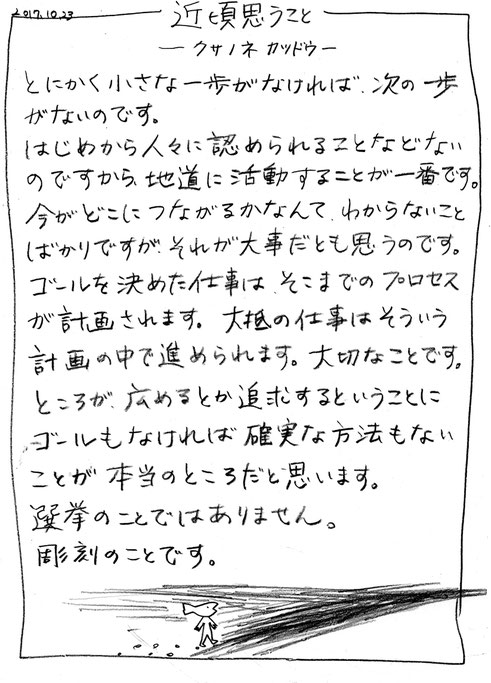 2017.10.23
近頃思うこと
ークサノネ カツドウー
とにかく小さな一歩がなければ、次の一歩
がないのです。
はじめから人々に認められることなどない
のですから、地道に活動することが一番です。
今がどこにつながるかなんて、わからないこと
ばかりですが、それが大事だとも思うのです。
ゴールを決めた仕事は、そこまでのプロセス
が計画されます。大抵の仕事はそういう
計画の中で進められます。大切なことです。
ところが、広めるとか追求するということに
ゴールもなければ確実な方法もない
ことが本当のところだと思います。
選挙のことではありません。
彫刻のことです。